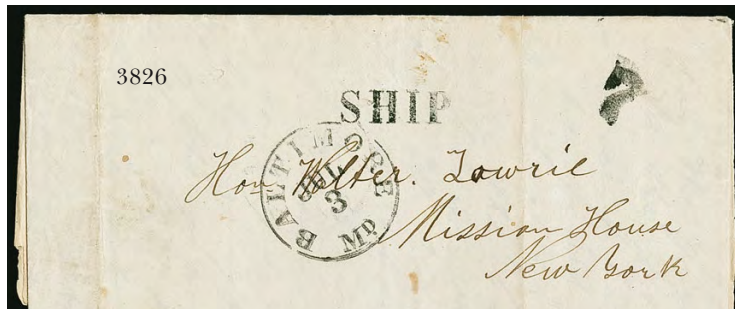 3826
SHIP
7
BALTIMORE Md
JUL
3
Hon Walter. Lowrie
Mission House
New York